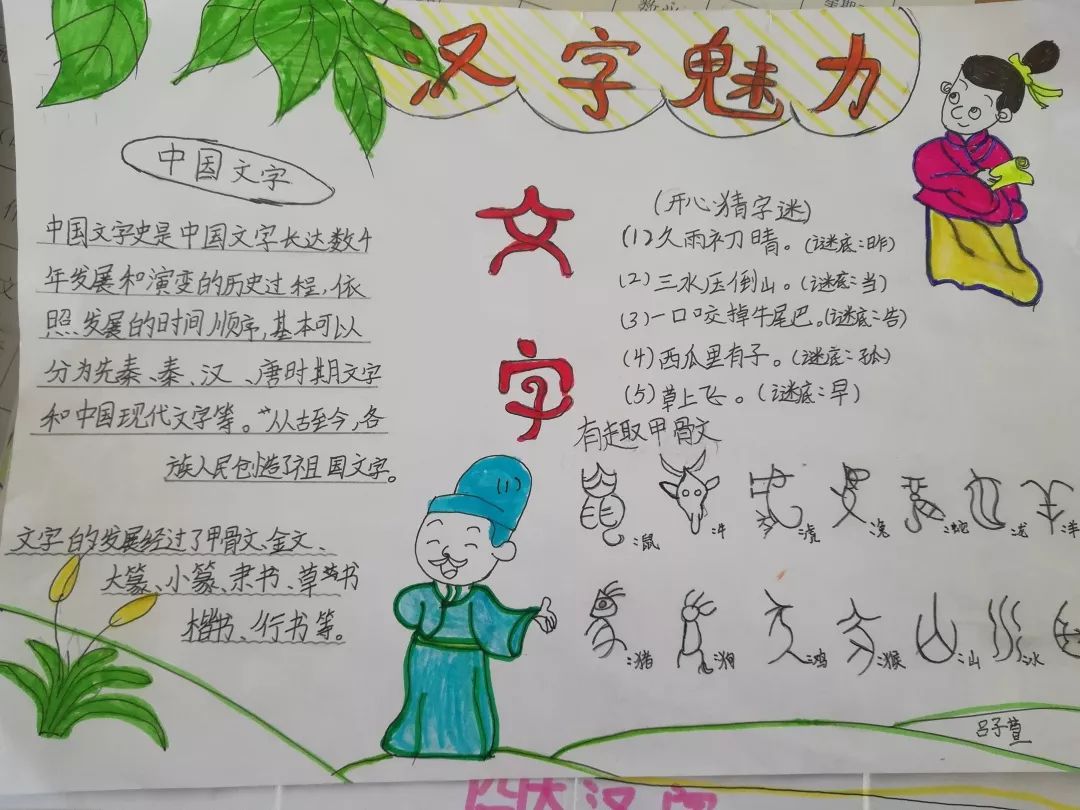 汉字魅力
中国文字
中国文字史是中国文字长达数千
年发展和演变的历史过程,依
照发展的时间顺序,基本可以
分为先秦、秦、汉、唐时期文字
和中国现代文字等。"从古至今,各
族人民创造了祖国文字。
文字的发展经过了甲骨文、金文、
大篆、小篆、隶书、草书
楷书、行书等。
文
字
(开心猜字迷)
(1)久雨初晴。(谜底:昨)
(2)三水压倒山。(谜底:当)
(3)一口咬掉牛尾巴。(谜底:告)
(4)西瓜里有子。(谜底:孤)
(5)草上飞。(谜底:早)
有趣甲骨文
:鼠 :牛 :虎 :兔 :蛇 :龙 :羊
:猪 :狗 :鸡 :猴 :山 :水
吕子萱